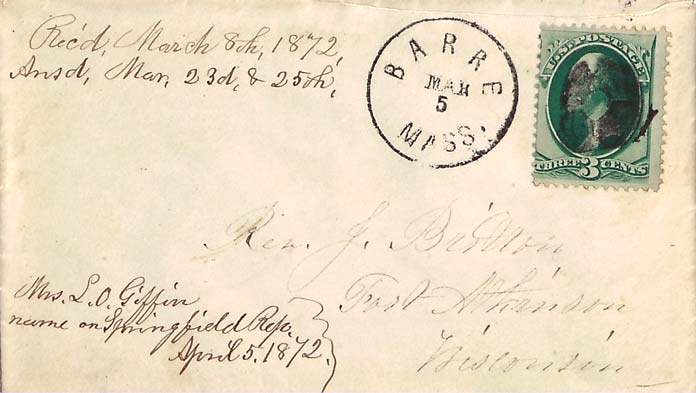 Rec'd, March 8th, 1872,
Ansd, Mar, 23d, & 25th,
BARRE
MAR
5
MASS.
U.S. POSTAGE
THREE 3 CENTS
Rev. J.
Fort Atkinson
Wisconsin
Mrs. L. O. Giffin
name on Springfield Repo.
April 5. 1872.